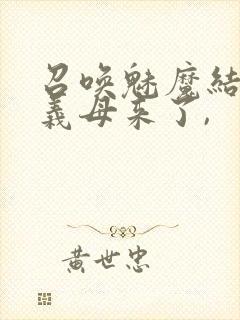 召唤魅魔結
義母来了,
黄世忠